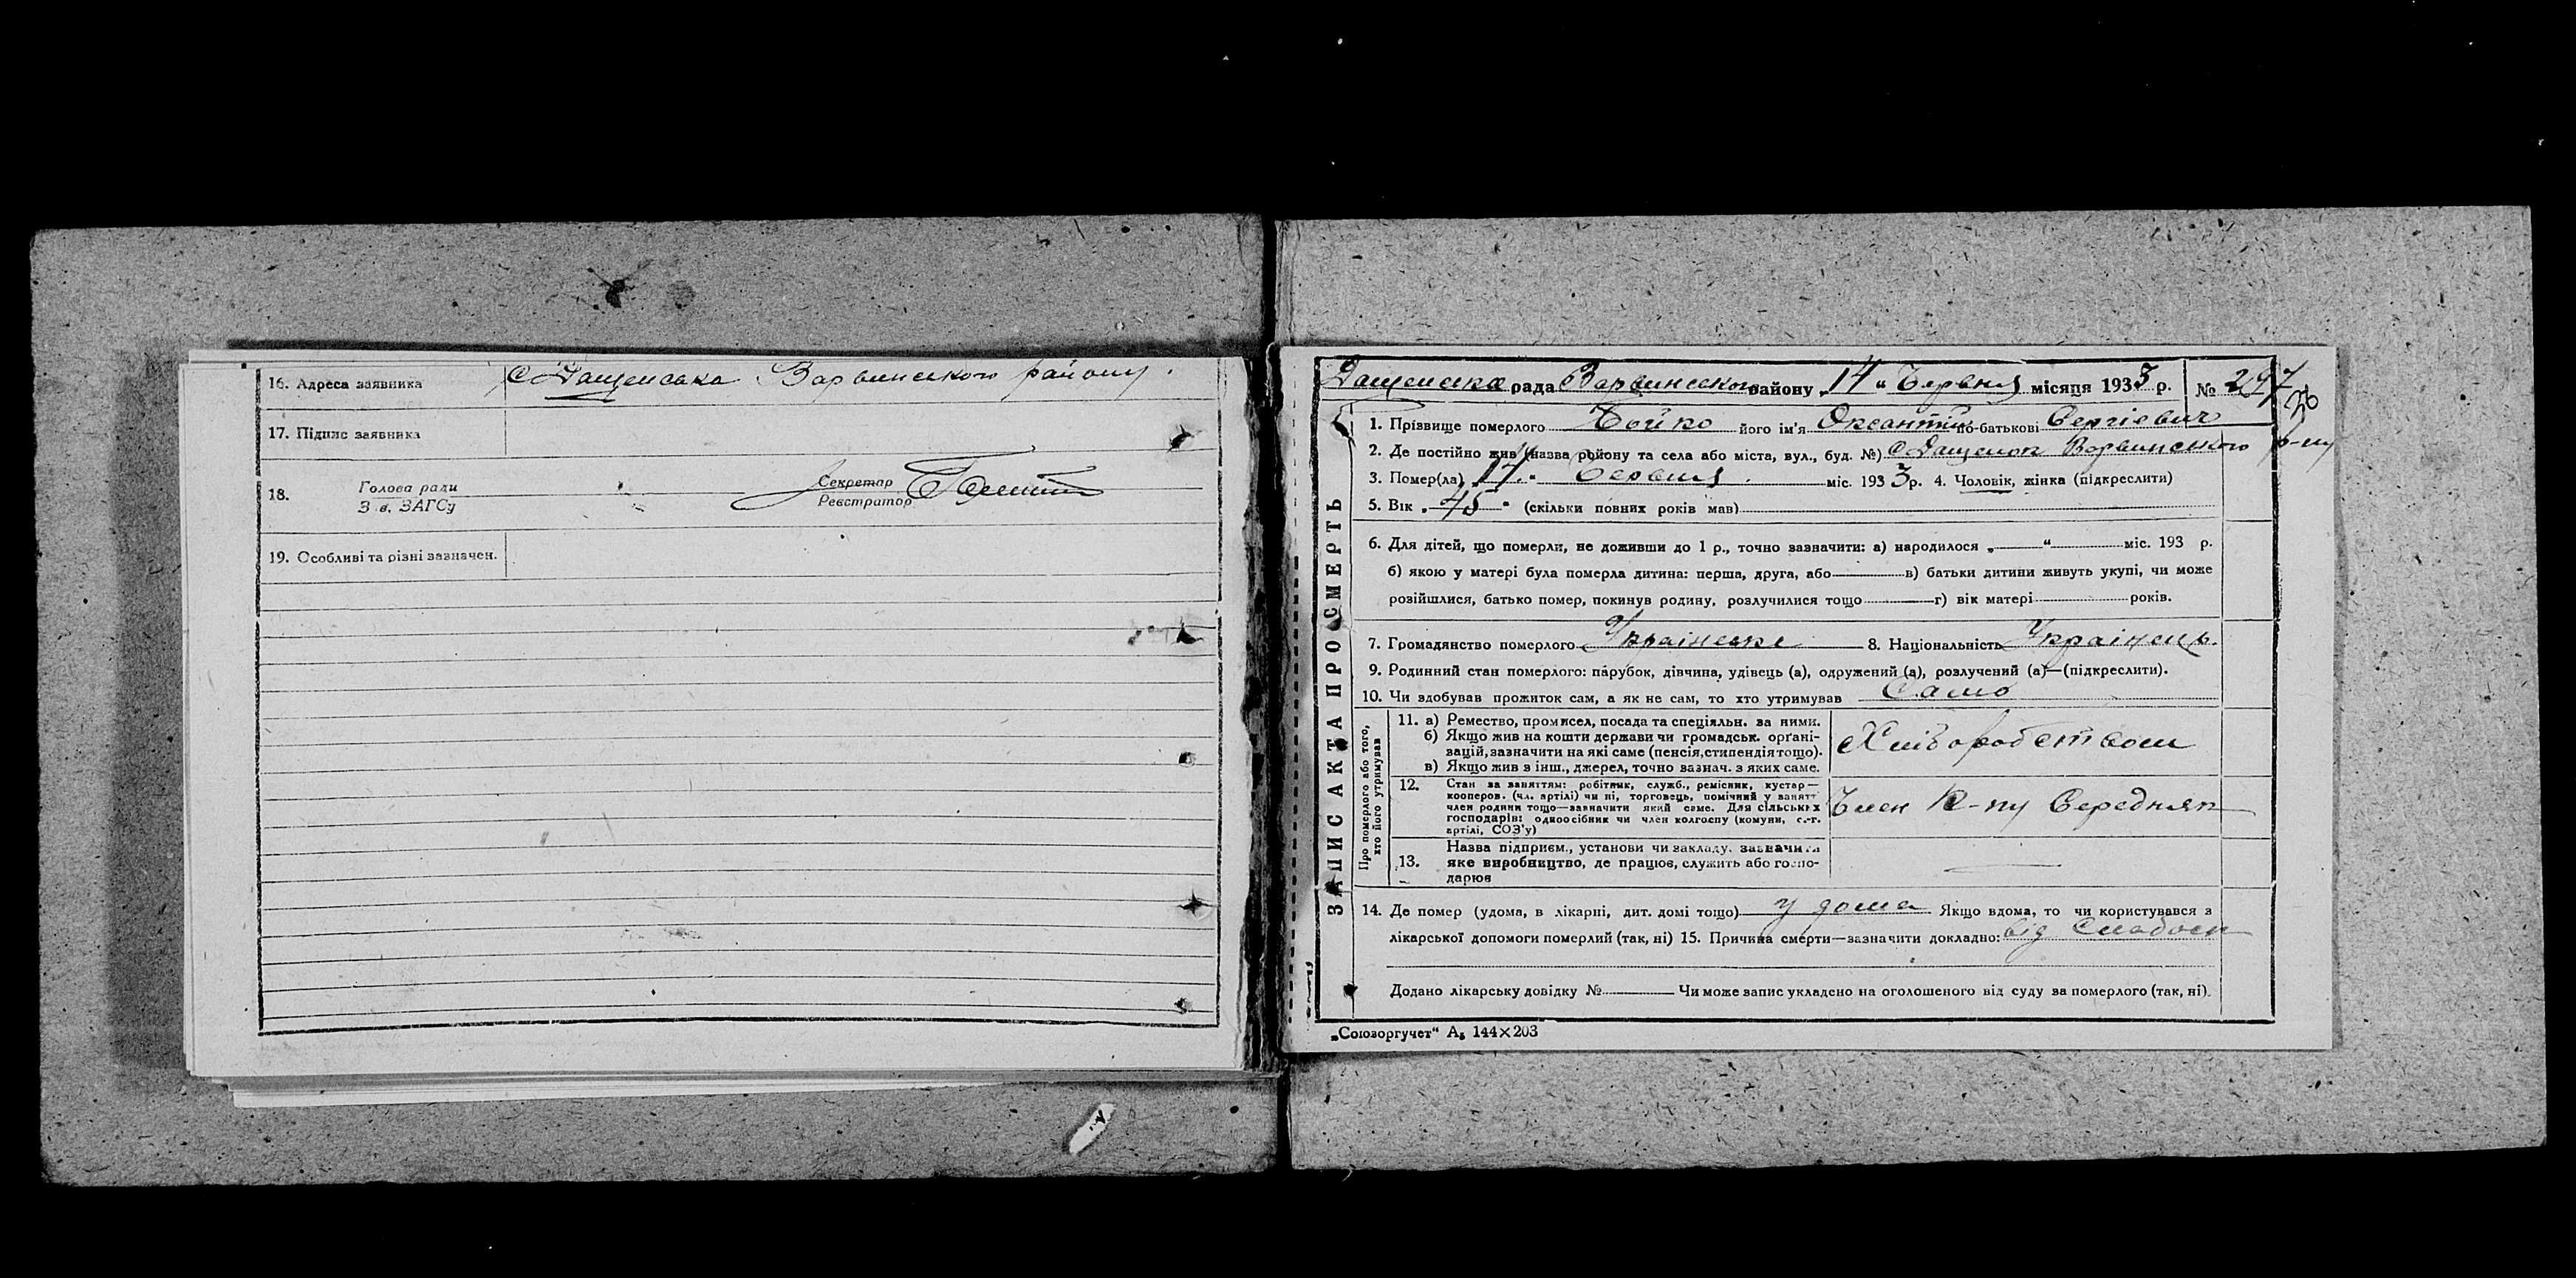 16. Адреса заявника С Дащенська Варвинського району.
17. Підпис заявника
18. Голова ради Секретар
З в. ЗАГСу Реєстратор
19. Особливі та різні зазначен.
ЗАПИС АКТА ПРО СМЕРТЬ
Дащенська рада Варвинського району 14 „ Червня місяця 1933 р. № 297
26
1. Прізвище померлого Бойко його ім'я Оксантій по-батькові Сергієвич
2. Де постійно жив (назва району та села або міста, вул., буд. №) С Дащенок Варвинського р-ну
3. Помер(ла) „14" Червня міс. 1933 р. 4. Чоловік, жінка (підкреслити)
5. Вік „45" (скільки повних років мав)
6. Для дітей, що померли, не доживши до 1 р., точно зазначити: а) народилося „ “ міс. 193 р.
б) якою у матері була померла дитина: перша, друга, або в) батьки дитини живуть укупі, чи може
розійшлися, батько помер, покинув родину, розлучилися тощо г) вік матері років.
7. Громадянство померлого Українське 8. Національність Українець.
9. Родинний стан померлого: парубок, дівчина, удівець (а), одружений (а), розлучений (а)—(підкреслити).
10. Чи здобував прожиток сам, а як не сам, то хто утримував Само
Про померлого або того, хто його утримував
11. а) Ремество, промисел, посада та спеціяльн. за ними.
б) Якщо жив на кошти держави чи громадськ. орґані-
зацій, зазначити на які саме (пенсія, стипендія тощо).
в) Якщо жив з інш., джерел, точно зазнач. з яких саме.
Хліборобством
12. Стан за заняттям: робітник, служб., ремісник, кустар—
кооперов. (чл. артілі) чи ні, торговець, помічний у занятт
член родини тощо—зазначити який саме. Для сільських
господарів: одноосібник чи член колгоспу (комуни, с.-г.
артілі, СОЗ'у)
Член К-пу Середняк
13. Назва підприєм., установи чи закладу, зазначити
яке виробництво, де працює, служить або госпо-
дарює
14. Де помер (удома, в лікарні, дит. домі тощо) у дома Якщо вдома, то чи користувався з
лікарської допомоги померлий (так, ні) 15. Причина смерти—зазначити докладно: від Слабости
Додано лікарську довідку № Чи може запис укладено на оголошеного від суду за померлого (так, ні).
„Союзоргучет“ А₅ 144×203